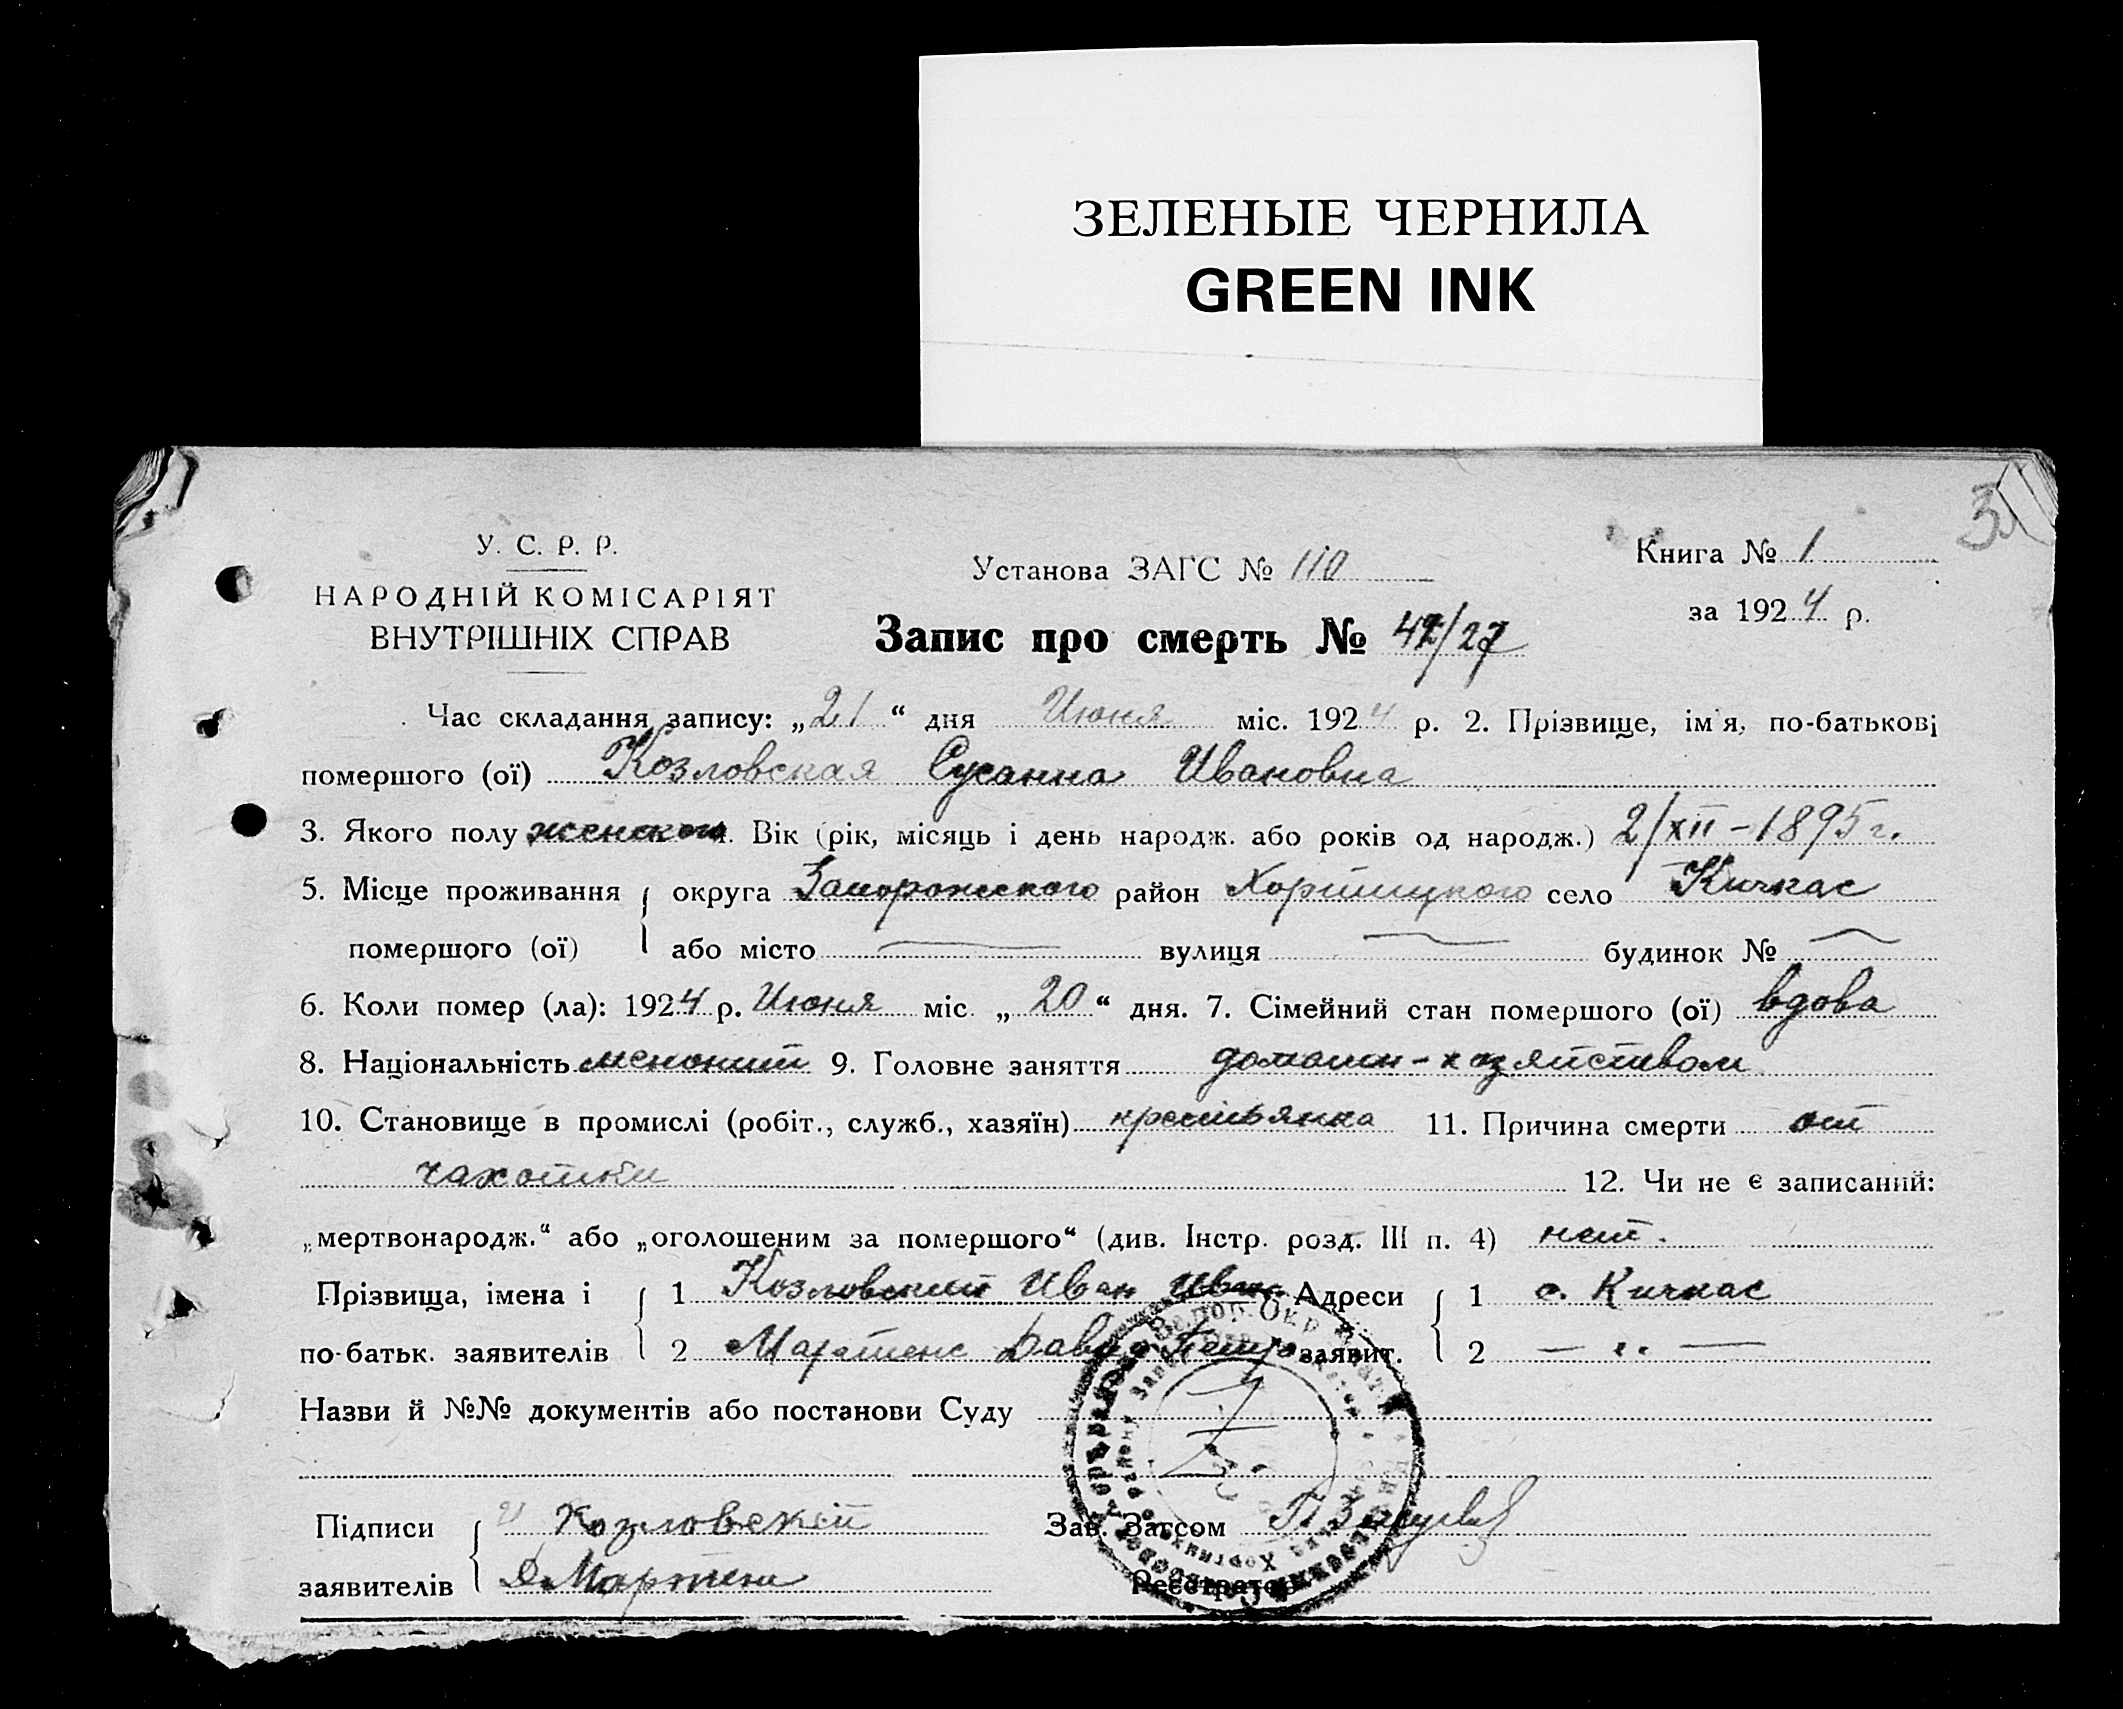 ЗЕЛЕНЫЕ ЧЕРНИЛА
GREEN INK
3
У. С. Р. Р.
НАРОДНІЙ КОМІСАРІЯТ
ВНУТРІШНІХ СПРАВ
Установа ЗАГС № 110
Книга № 1
за 1924 р.
Запис про смерть № 42/27
Час складання запису: „21“ дня Июня міс. 1924 р. 2. Прізвище, ім'я, по-батькові
помершого (ої) Козловская Сусанна Ивановна
3. Якого полу женского 4. Вік (рік, місяць і день народж. або років од народж.) 2/XII-1895 г.
5. Місце проживання { округа Запорожского район Хортицкого село Кичкас
помершого (ої) або місто — вулиця — будинок № —
6. Коли помер (ла): 1924 р. Июня міс. „20“ дня. 7. Сімейний стан помершого (ої) вдова
8. Національність менонит 9. Головне заняття домашн-хозяйством
10. Становище в промислі (робіт., служб., хазяїн) крестьянка 11. Причина смерти от
чахотки 12. Чи не є записаний:
„мертвонародж.“ або „оголошеним за помершого“ (див. Інстр. розд. III п. 4) нет.
Прізвища, імена і { 1 Козловский Иван Иван. Адреси { 1 с. Кичкас
по-батьк. заявителів 2 Мартенс Давид Петр. заявит. 2 — „ —
Назви й №№ документів або постанови Суду
Підписи { И Козловский Зав. Загсом
заявителів Д. Мартенс Реєстратор